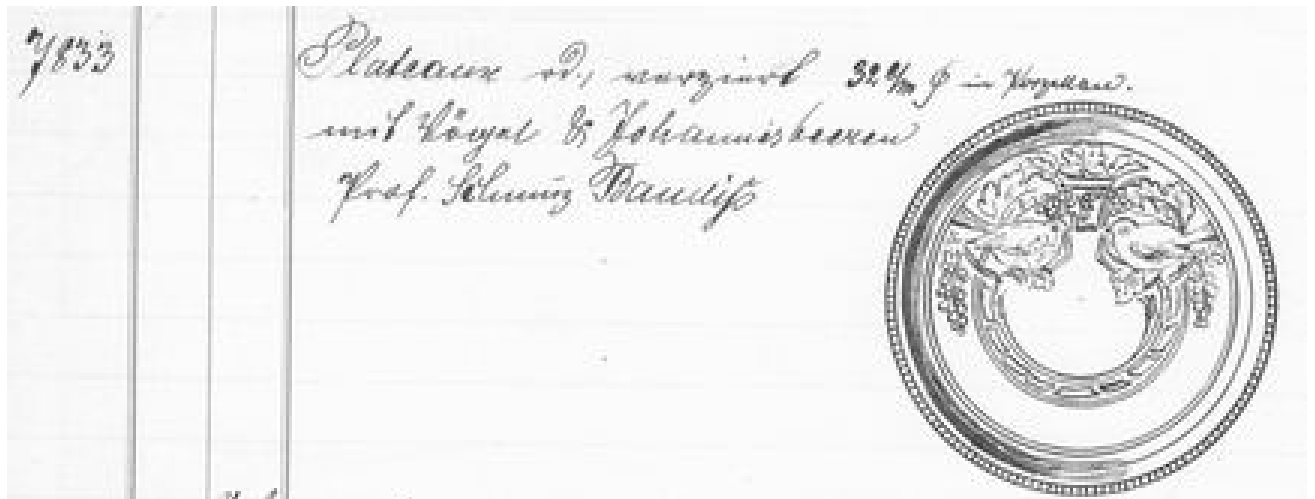 7833
Plateaux rd, verziert 32 c/m ϕ in Porzellan.
mit Vögel & Johannisbeeren
Prof. Schmuz Baudiß